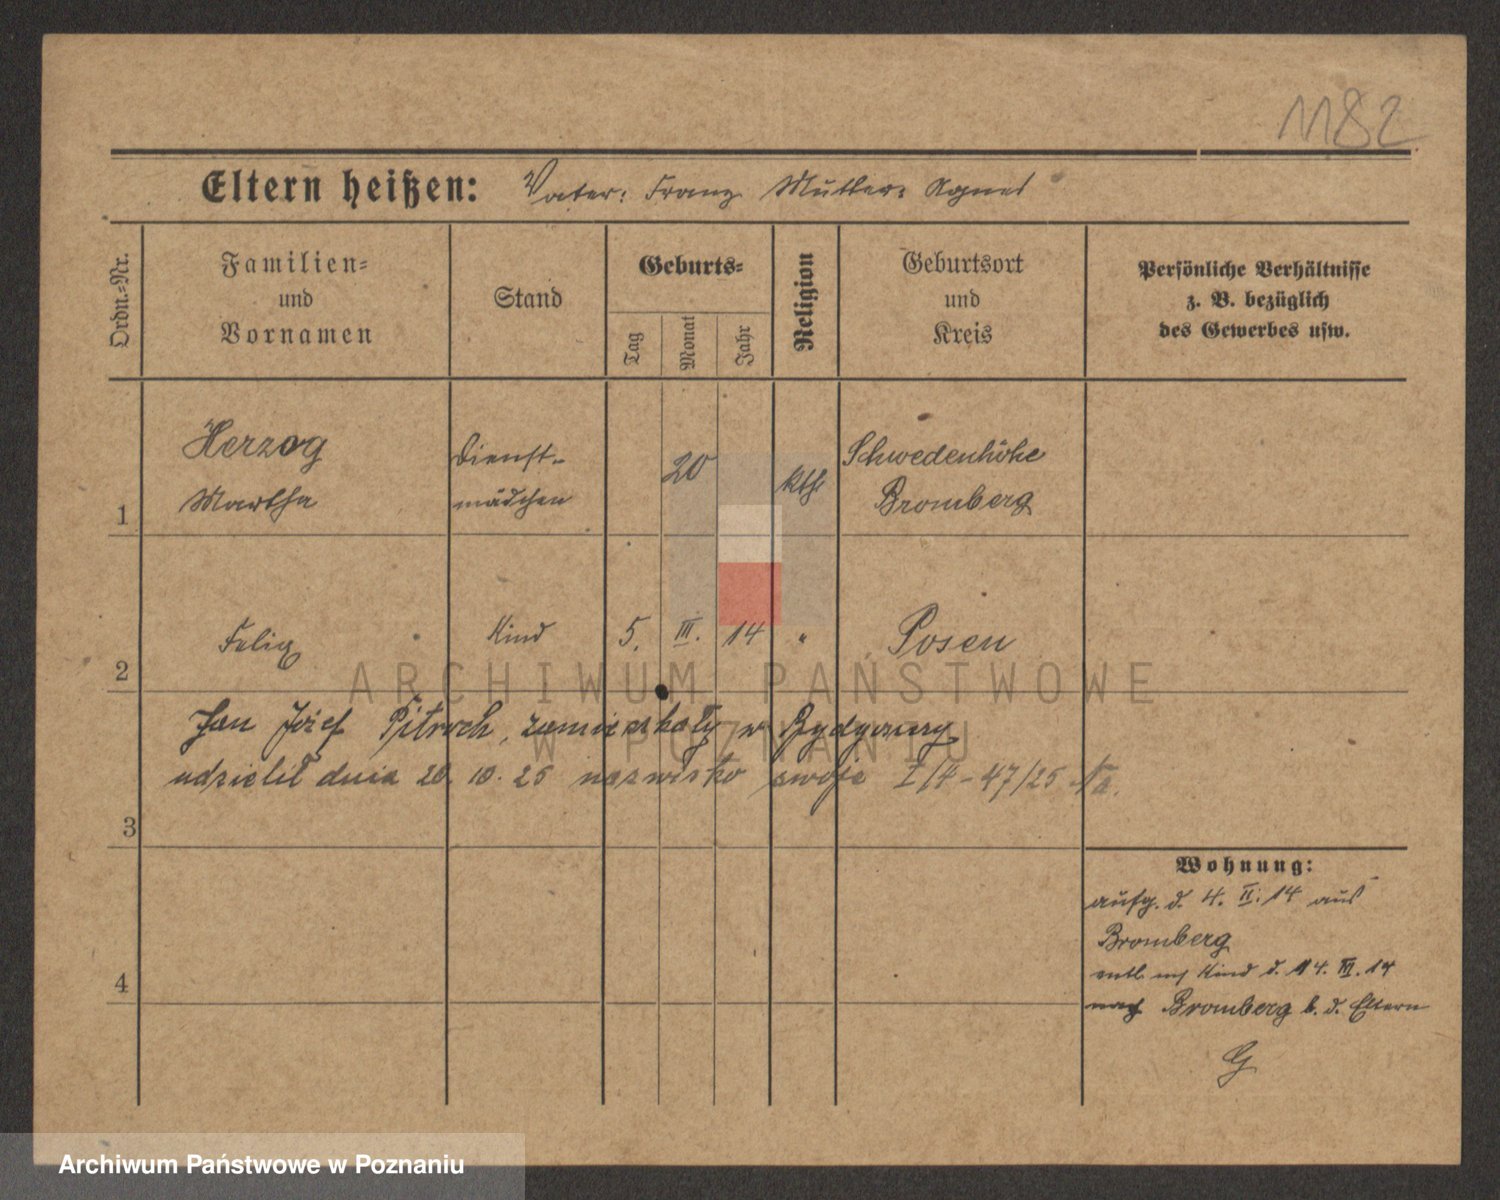 1182
Eltern heißen: Vater: Franz Mutter: Agnes
Ordn.=Nr.
Familien=
und
Vornamen
Stand
Geburts=
Tag
Monat
Jahr
Religion
Geburtsort
und
Kreis
Persönliche Verhältnisse
z. B. bezüglich
des Gewerbes usw.
1
Herzog
Martha
Dienst-
mädchen
20
kth.
Schwedenhöhe
Bromberg
2
Felix
Kind
5. III. 14
"
Posen
Jan Józef Pitroch, zamieszkały w Bydgoszczy
udzielił dnia 20. 10. 25 nazwisko swoje I/4 - 47/25
3
4
Wohnung:
aufg. d. 4. II. 14 aus
Bromberg
entl. m Kind d. 14. III. 14
nach Bromberg b. d. Eltern
G
ARCHIWUM PAŃSTWOWE
W POZNANIU
Archiwum Państwowe w Poznaniu